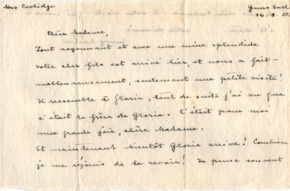 Mrs Coolidge
Chère Madame,
Tout rayonnant et avec une mine splendide
votre cher fils est arrivé hier, et nous a fait -
malheureusement, seulement une petite visite!
Il ressemble à Gloria, tout de suite j'ai vu que
c'était le frère de Gloria. C'était pour moi
une grande joie, chère Madame.
Et maintenant bientôt Gloria arrive! Combien
je me réjouis de la revoir! Je pense souvent